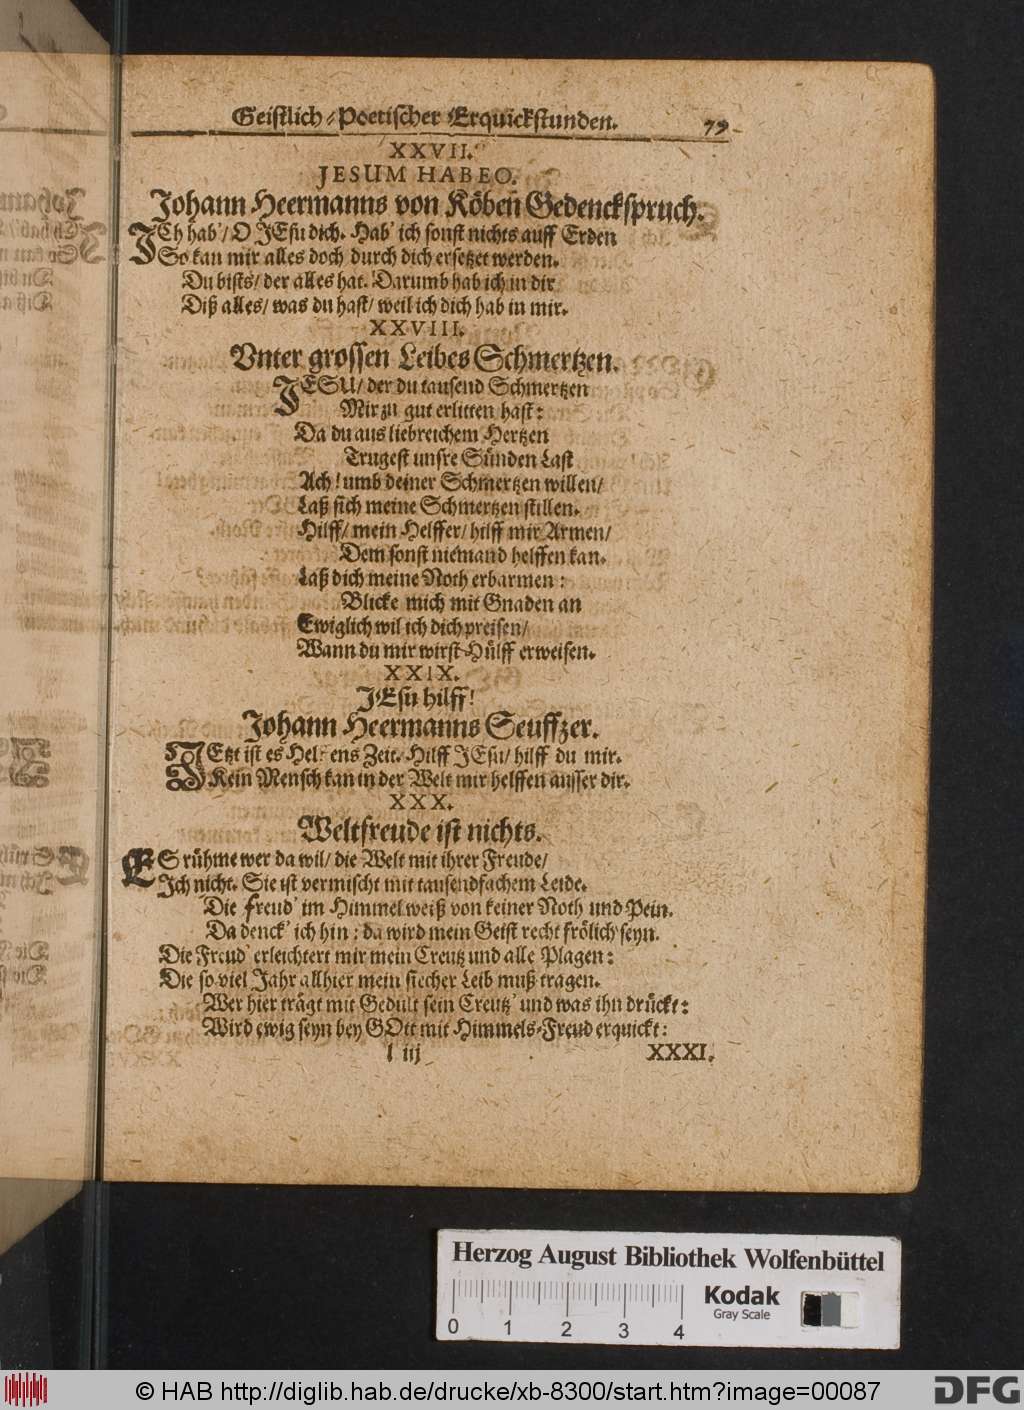 Geistlich-Poetischer Erquickstunden. 79
XXVII.
JESUM HABEO.
Johann Heermanns von Köben Gedenckspruch.
ICh hab'/ O JEsu dich. Hab' ich sonst nichts auff Erden
So kan mir alles doch durch dich ersetzet werden.
Du bists/ der alles hat. Darumb hab ich in dir
Diß alles/ was du hast/ weil ich dich hab in mir.
XXVIII.
Vnter grossen Leibes Schmertzen.
JESU/ der du tausend Schmertzen
Mir zu gut erlitten hast:
Da du aus liebreichem Hertzen
Trugest unsre Sünden Last
Ach! umb deiner Schmertzen willen/
Laß sich meine Schmertzen stillen.
Hilff/ mein Helffer/ hilff mir Armen/
Dem sonst niemand helffen kan.
Laß dich meine Noth erbarmen:
Blicke mich mit Gnaden an
Ewiglich wil ich dich preisen/
Wann du mir wirst Hülff erweisen.
XXIX.
JEsu hilff!
Johann Heermanns Seuffzer.
JEtzt ist es Helfens Zeit. Hilff JEsu/ hilff du mir.
Kein Mensch kan in der Welt mir helffen ausser dir.
XXX.
Weltfreude ist nichts.
ES rühme wer da wil/ die Welt mit ihrer Freude/
Ich nicht. Sie ist vermischt mit tausendfachem Leide.
Die freud' im Himmel weiß von keiner Noth und Pein.
Da denck' ich hin: da wird mein Geist recht frölich seyn.
Die Freud' erleichtert mir mein Creutz und alle Plagen:
Die so viel Jahr allhier mein siecher Leib muß tragen.
Wer hier trägt mit Gedult sein Creutz' und was ihn drückt:
Wird ewig seyn bey GOtt mit Himmels-Freud erquickt:
l iij XXXI.
Herzog August Bibliothek Wolfenbüttel
Kodak
Gray Scale
0 1 2 3 4
© HAB http://diglib.hab.de/drucke/xb-8300/start.htm?image=00087
DFG